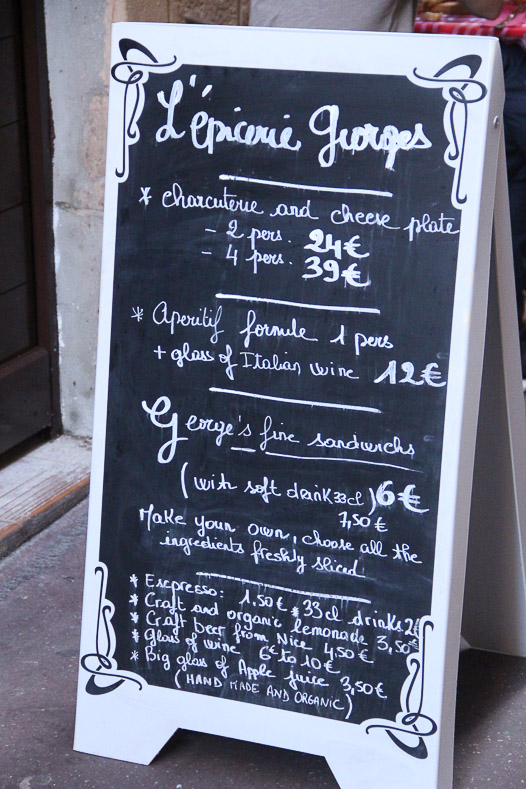 L'épicerie Georges
* charcuterie and cheese plate
- 2 pers. 24€
- 4 pers. 39€
* Aperitif formule 1 pers
+ glass of Italian wine 12€
George's fine sandwichs
(with soft drink 33cl) 6€
7,50€
Make your own, choose all the
ingredients freshly sliced
* Espresso: 1.50€ * 33cl drinks 2€
* Craft and organic lemonade 3,50€
* Craft beer from Nice 4,50€
* glass of wine 6€ to 10€
* Big glass of Apple juice 3,50€
(HAND MADE AND ORGANIC)